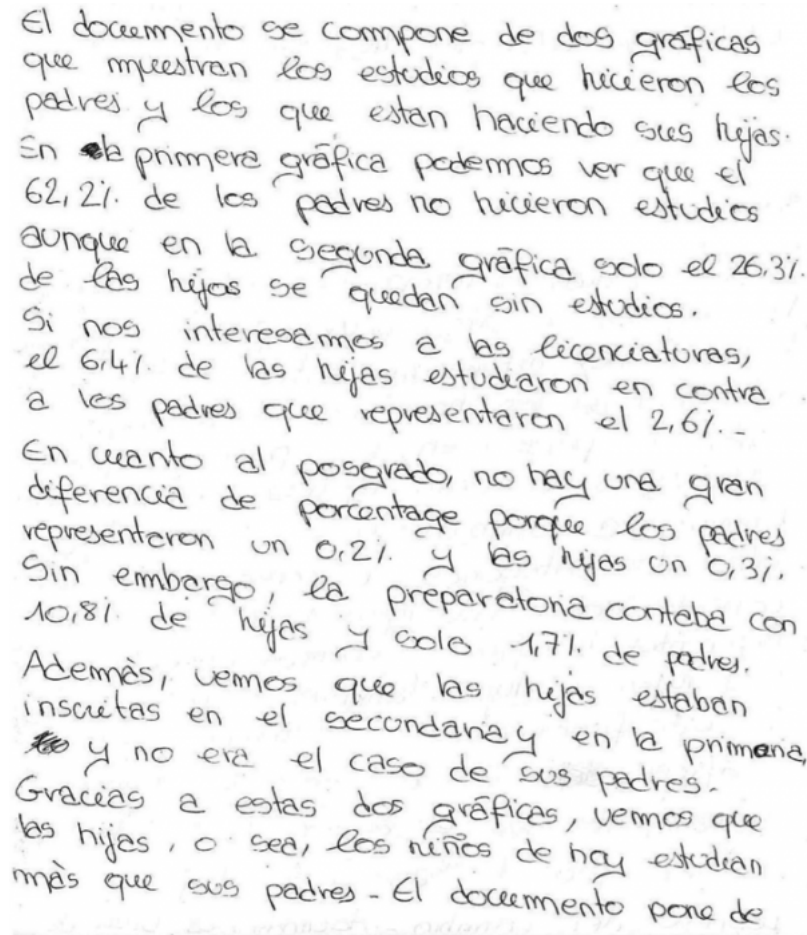 El documento se compone de dos gráficas
que muestran los estudios que hicieron los
padres y los que estan haciendo sus hijas.
En la primera gráfica podemos ver que el
62,2% de los padres no hicieron estudios
aunque en la segunda gráfica solo el 26,3%
de las hijas se quedan sin estudios.
Si nos interesamos a las licenciaturas,
el 6,4% de las hijas estudiaron en contra
a los padres que representaron el 2,6%.-
En cuanto al posgrado, no hay una gran
diferencia de porcentage porque los padres
representaron un 0,2% y las hijas un 0,3%.
Sin embargo, la preparatoria contaba con
10,8% de hijas y solo 1,7% de padres.
Ademàs, vemos que las hijas estaban
inscritas en el secondaria y en la primaria
y no era el caso de sus padres.
Gracias a estas dos gráficas, vemos que
las hijas, o sea, los niños de hoy estudian
màs que sus padres - El documento pone de